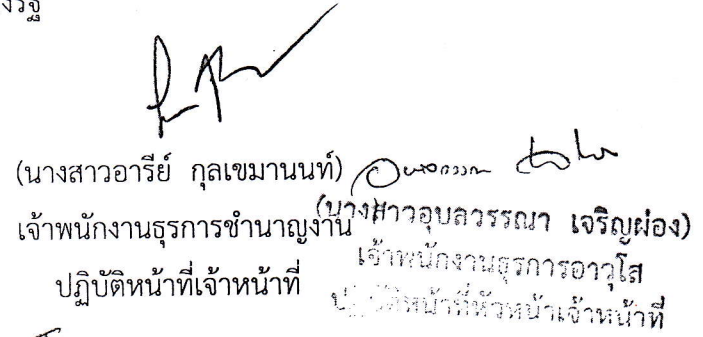 (นางสาวอารีย์ กุลเขมานนท์)
เจ้าพนักงานธุรการชำนาญงาน
ปฏิบัติหน้าที่เจ้าหน้าที่
(นางสาวอุบลวรรณา เจริญผ่อง)
เจ้าพนักงานธุรการอาวุโส
ปฏิบัติหน้าที่หัวหน้าเจ้าหน้าที่